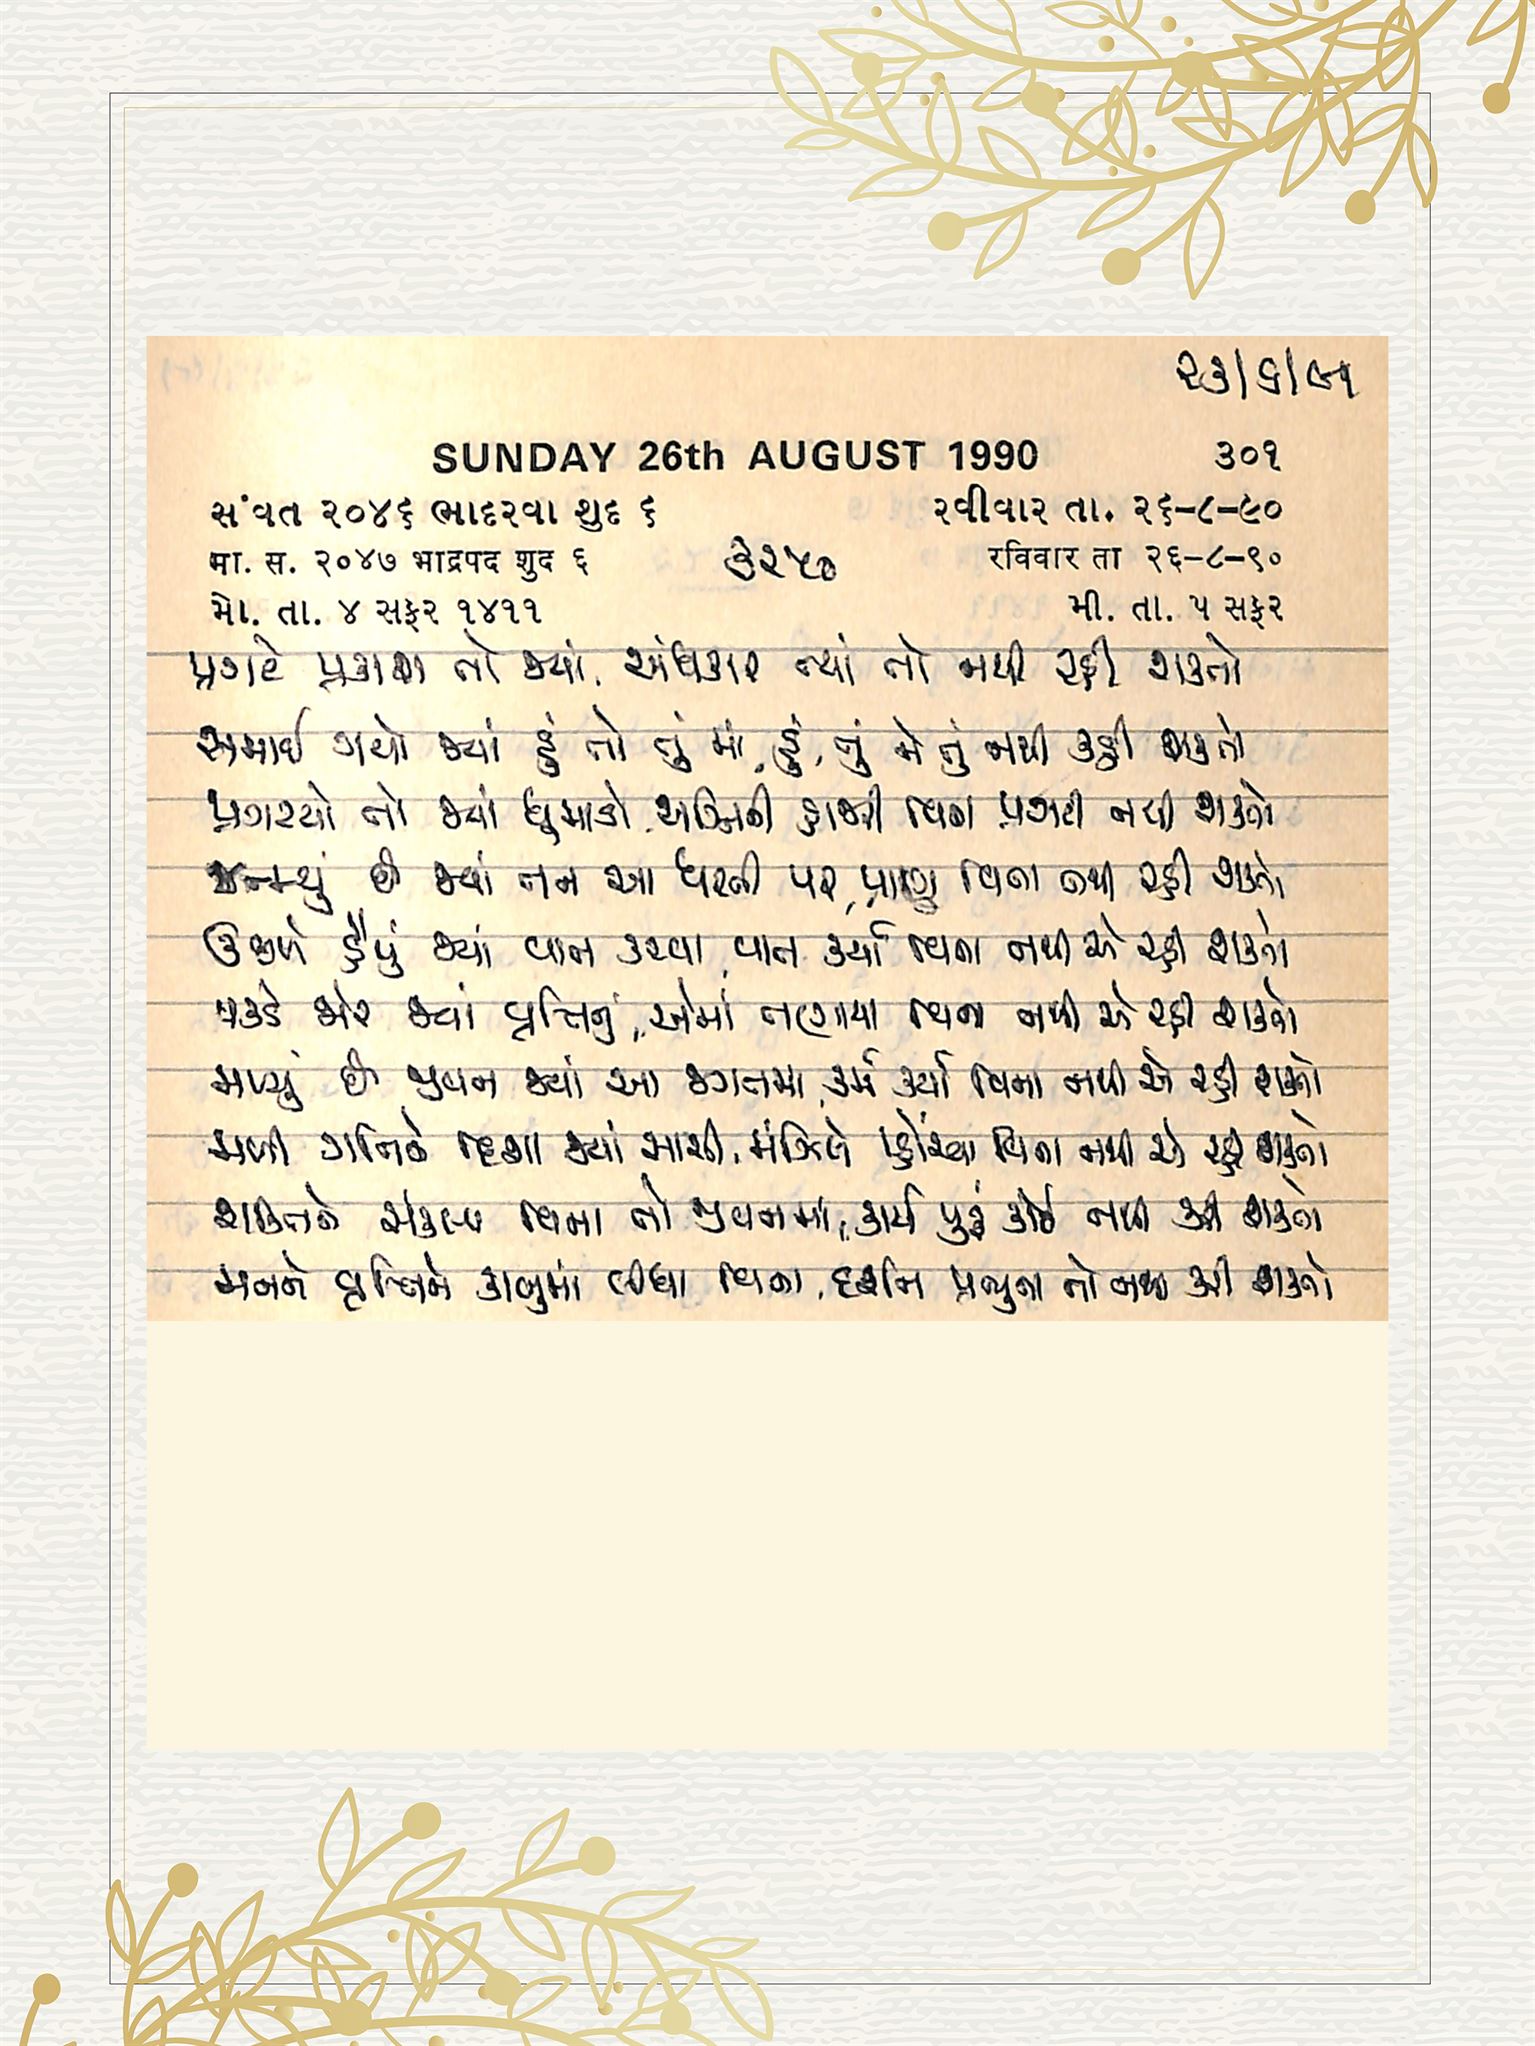 ૨૩/૬/૯૧
SUNDAY 26th AUGUST 1990 ૩૦૧
સંવત ૨૦૪૬ ભાદરવા શુદ ૬ રવીવાર તા. ૨૬-૮-૯૦
मा. स. २०४७ भाद्रपद शुद ६ ૩૨૫૦ रविवार ता २६-८-९०
મો. તા. ૪ સફર ૧૪૧૧ મી. તા. ૫ સફર
પ્રગટે પ્રકાશ તો જ્યાં, અંધકાર ત્યાં તો નથી રહી શકતો
સમાઈ ગયો જ્યાં હું તો તું માં, હું, તું ને તું નથી કહી શકતો
પ્રગટયો તો જ્યાં ધુમાડો, અગ્નિની હાજરી વિના પ્રગટી નથી શકતો
જન્મ્યું છે જ્યાં તન આ ધરતી પર, પ્રાણ વિના નથી રહી શકતો
ઉછળે હૈયું જ્યાં વાત કરવા, વાત કર્યા વિના નથી એ રહી શકતો
પકડે જોર જ્યાં વૃત્તિનું, એમાં તણાયા વિના નથી એ રહી શકતો
મળ્યું છે જીવન જ્યાં આ જગતમા, કર્મ કર્યા વિના નથી એ રહી શકતો
મળી ગતિને દિશા જ્યાં સાચી, મંઝિલે પ્હોંચ્યા વિના નથી એ રહી શકતો
શક્તિને સંકલ્પ વિના તો જીવનમાં, કાર્ય પુરું કોઈ નથી કરી શકતો
મનને વૃત્તિને કાબુમાં લીધા વિના, દર્શન પ્રભુના તો નથી કરી શકતો